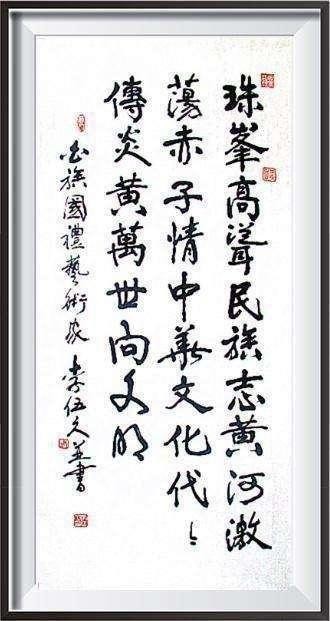 珠峯高聳民族志黃河激
蕩赤子情中華文化代〻
傳炎黃萬世向文明
白族國禮藝術家李伍久並書